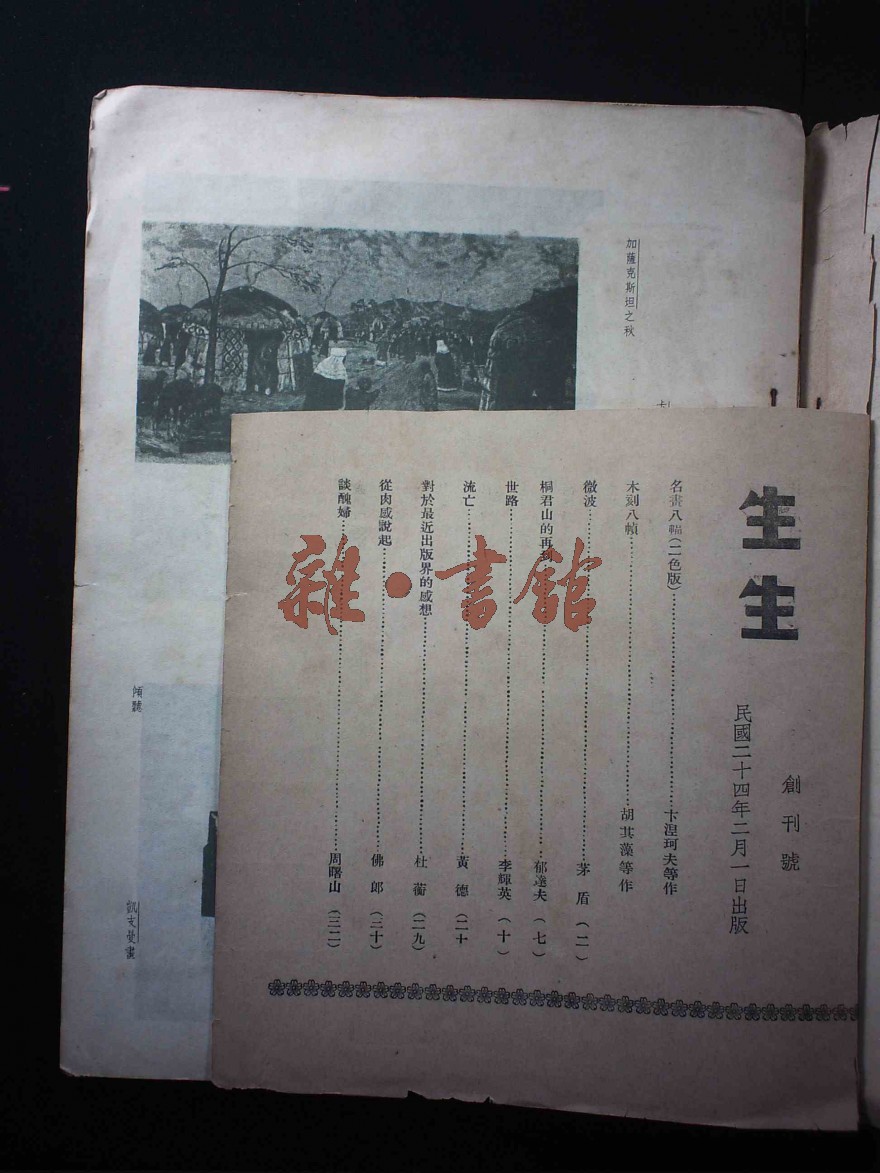 生生
創刊號
民國二十四年二月一日出版
名畫八幅(二色版)……卞涅珂夫等作
木刻八幀……胡其藻等作
微波……茅盾(二)
桐君山的再到……郁達夫(七)
世路……李輝英(十)
流亡……黃德(二十
對於最近出版界的感想……杜衡(二九)
從肉感說起……佛郎(三十)
談醜婦……周曙山(三二)
加薩克斯坦之秋
傾聽
凱支曼畫
雜·書館